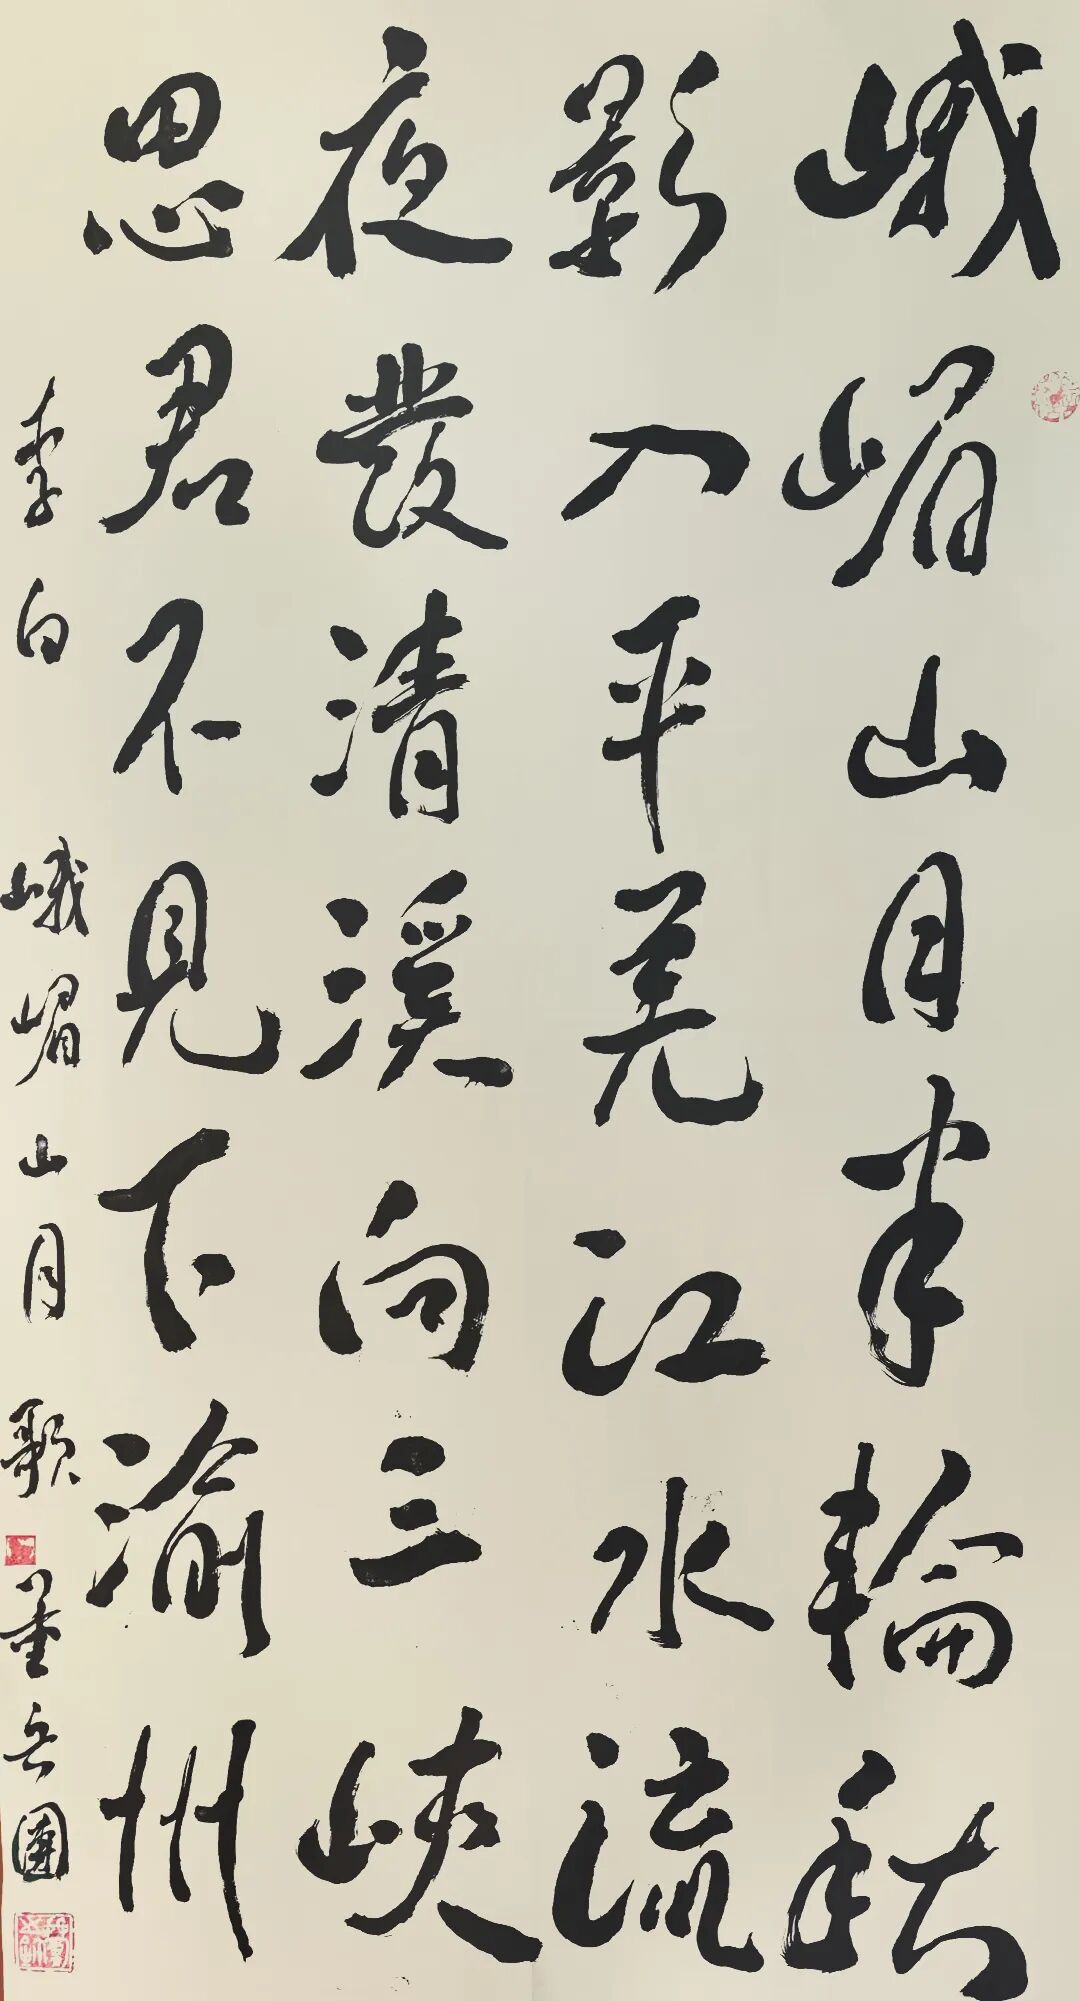 峨嵋山月半輪秋
影入平羌江水流
夜發清溪向三峽
思君不見下渝州
李白 峨嵋山月歌 董